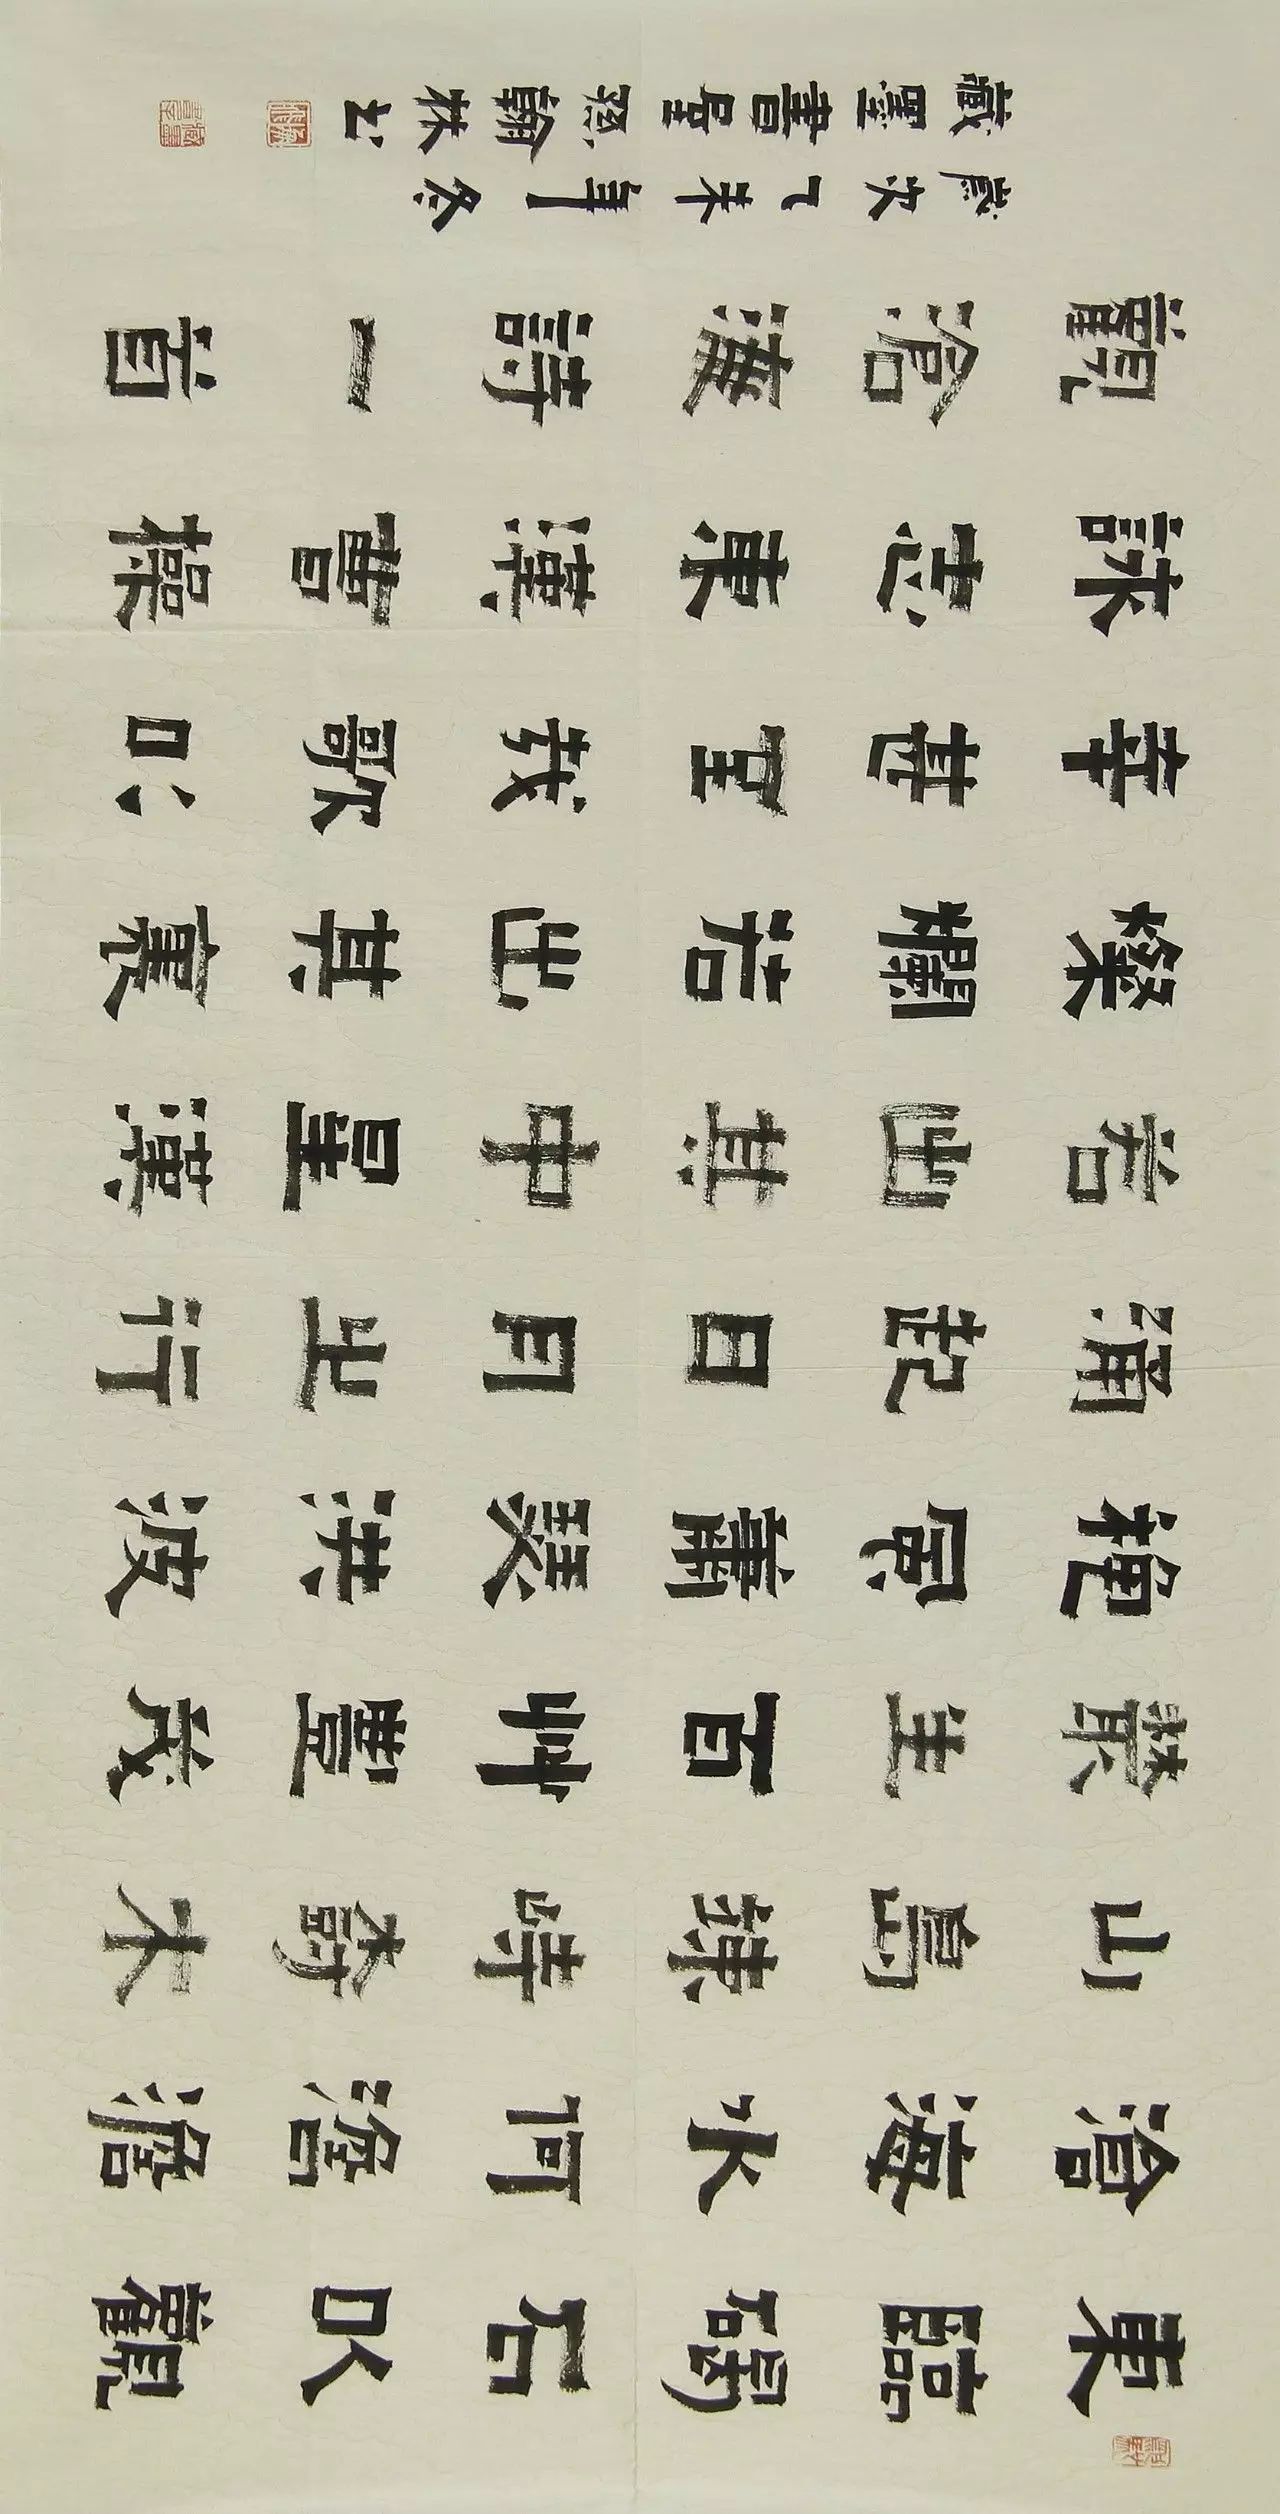 東臨碣石以觀
滄海水何澹澹
山島竦峙樹木
叢生百艸豐茂
穐風蕭瑟洪波
涌起日月之行
若出其中星漢
燦爛若出其裏
幸甚至哉歌以
詠志東漢曹操
觀滄海詩一首
歲次乙未年冬
藏墨書屋孫翰林書